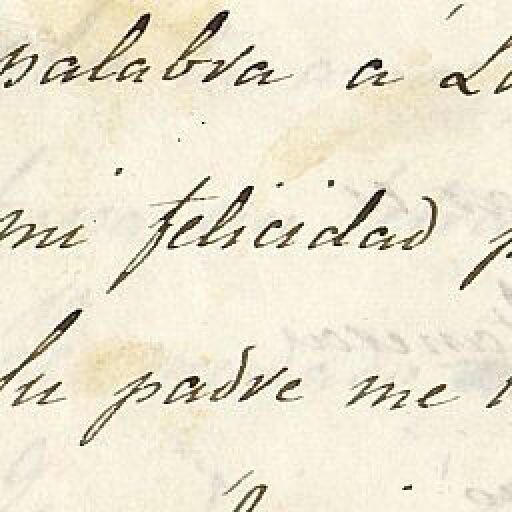 palabra á
mi felicidad
su padre me